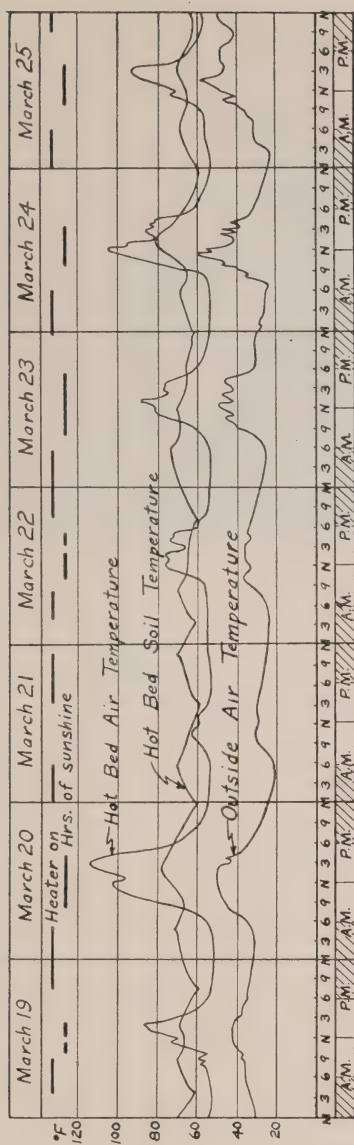 March 19 March 20 March 21 March 22 March 23 March 24 March 25
Heater on
Hrs. of sunshine
°F
120
100
80
60
40
20
0
Hot Bed Air Temperature
Hot Bed Soil Temperature
Outside Air Temperature
M 3 6 9 N 3 6 9 M 3 6 9 N 3 6 9 M 3 6 9 N 3 6 9 M 3 6 9 N 3 6 9 M 3 6 9 N 3 6 9 M 3 6 9 N 3 6 9 M 3 6 9 N 3 6 9 M
A.M. P.M. A.M. P.M. A.M. P.M. A.M. P.M. A.M. P.M. A.M. P.M. A.M. P.M.